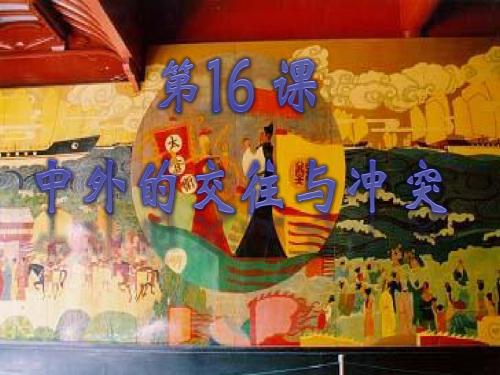 第16 课
中外的交往与冲突